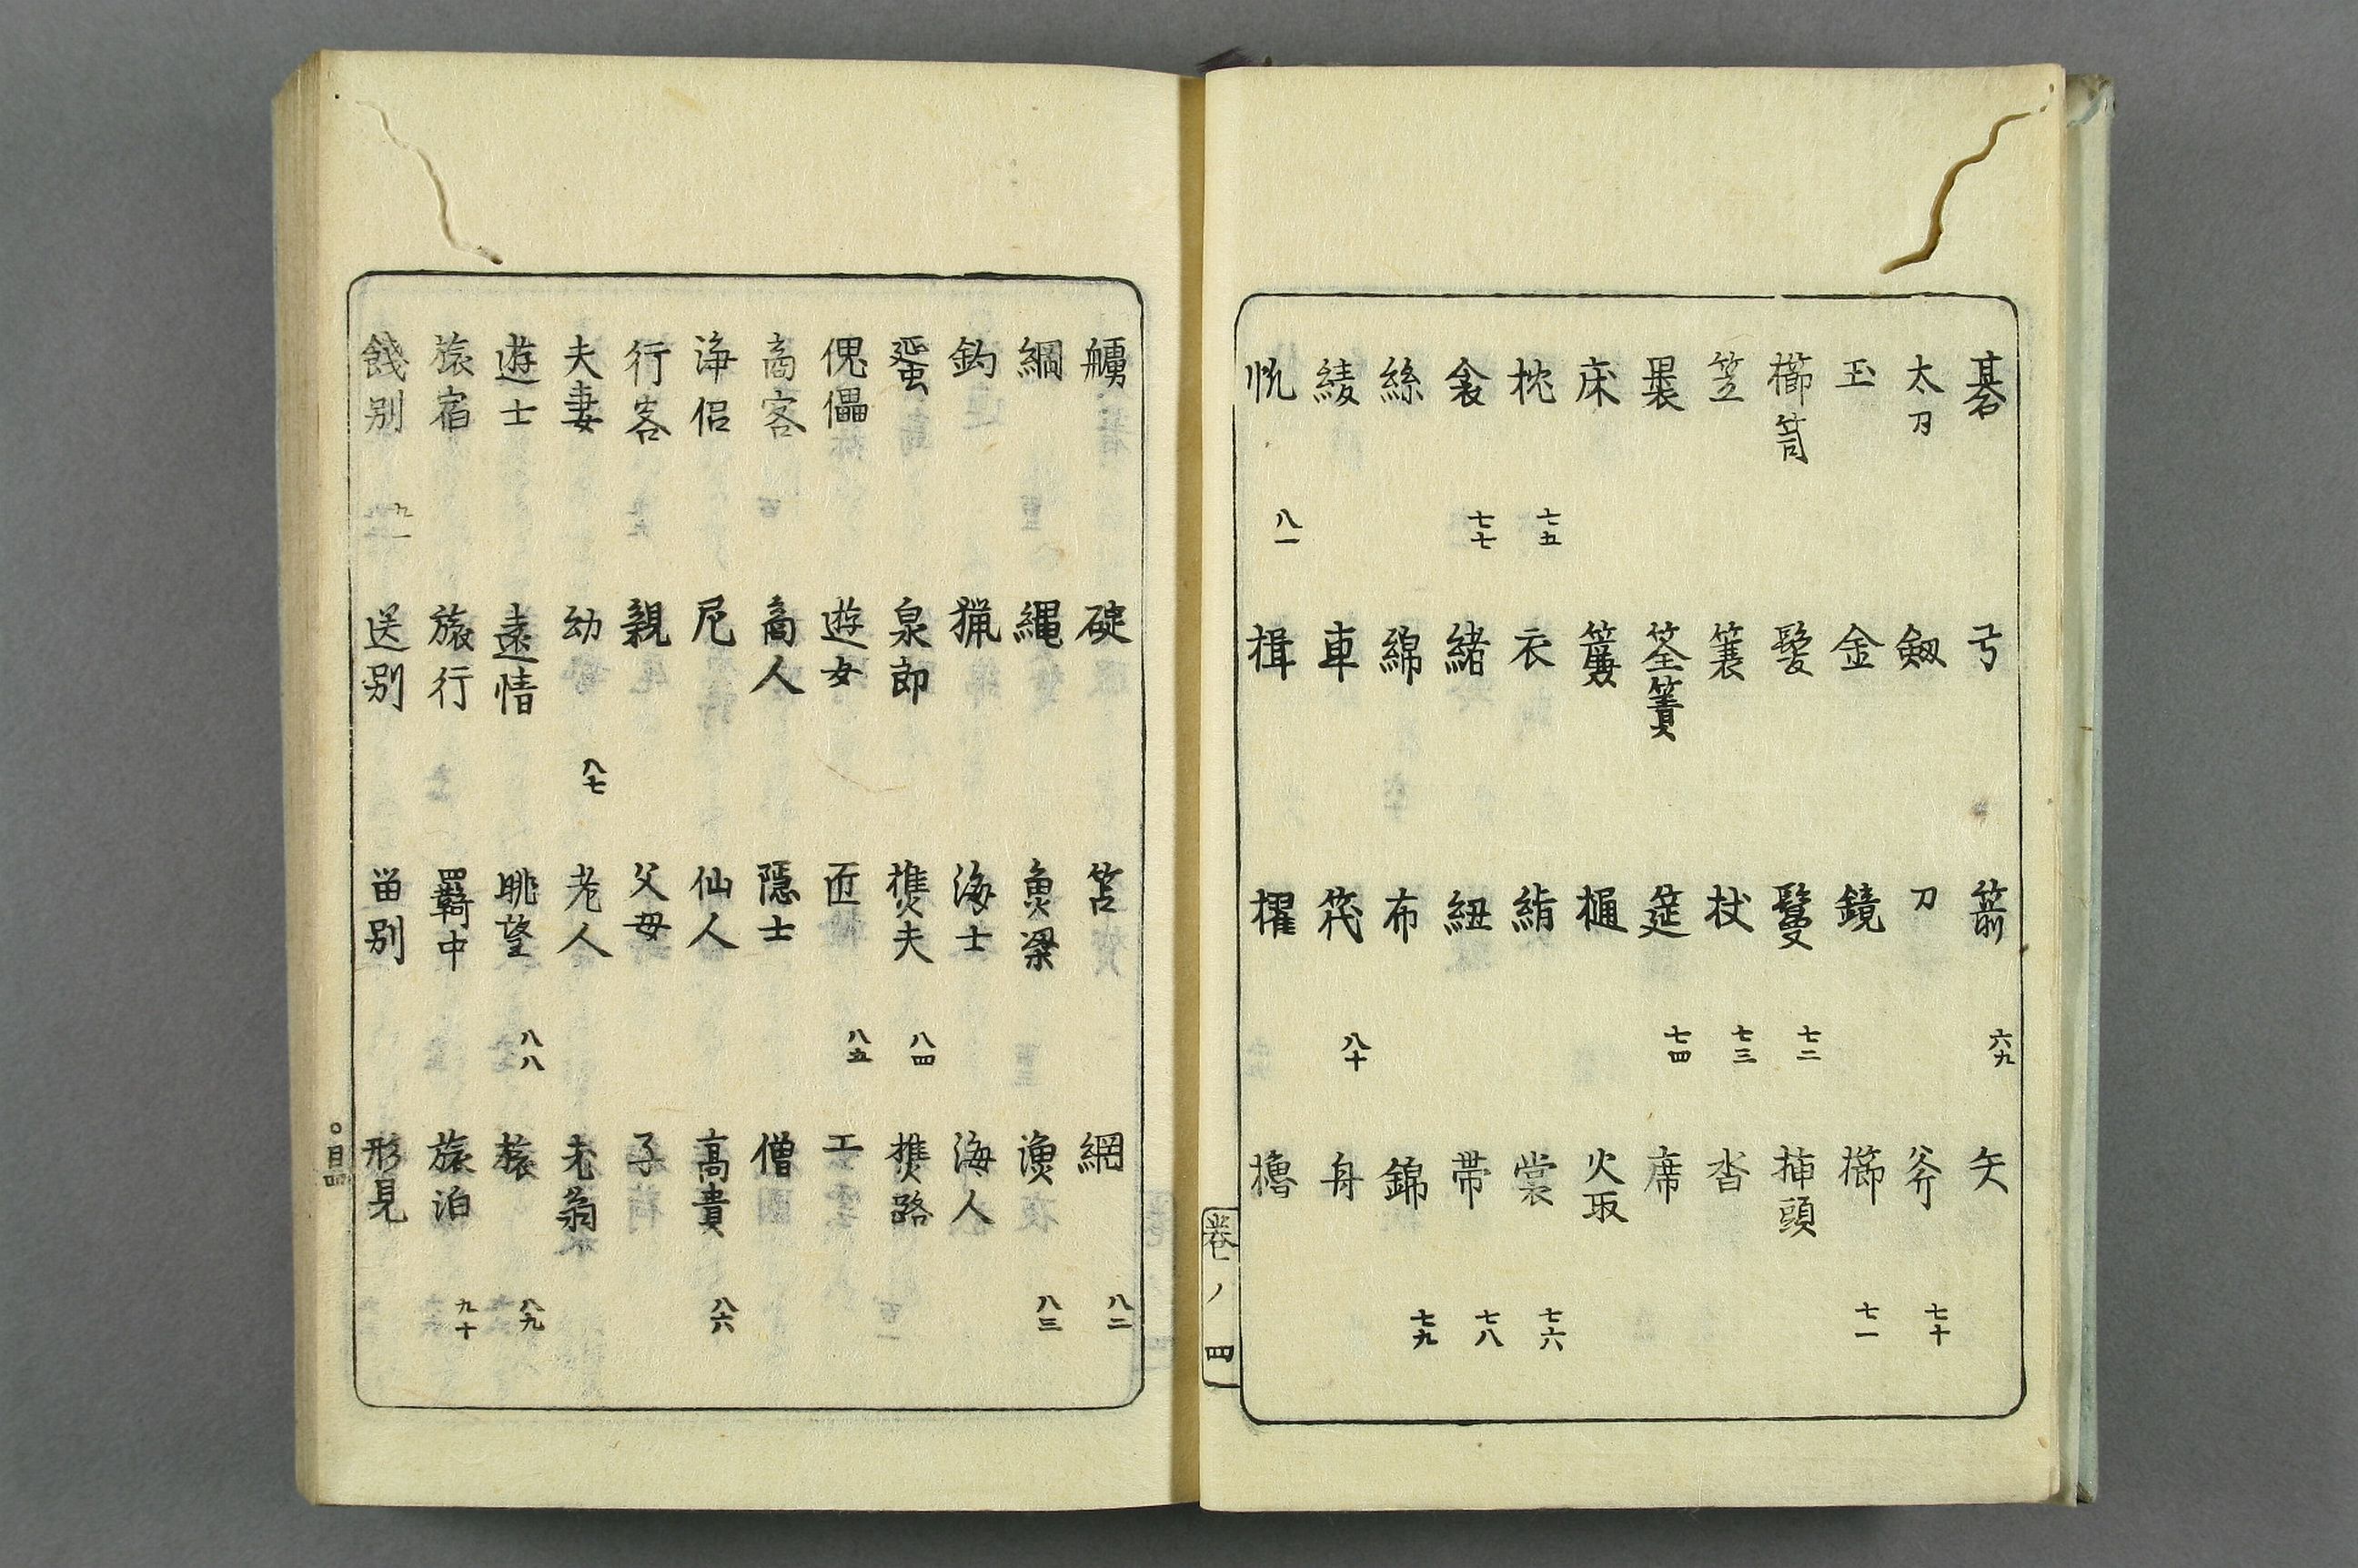 碁 弓 箭 六九 矢
太刀 劔 刀 斧 七十
玉 金 鏡 櫛 七一
櫛笥 髪 鬘 七二 挿頭
笠 簑 杖 七三 沓
筌簀 筵 七四 席
床 樋 火取
枕 七五 衣 絹 裳 七六
衾 七七 緒 紐 帯 七八
絲 綿 布 錦 七九
綾 車 筏 八十 舟
八一 楫 櫂 櫓
卷ノ四
碇 笘 網 八二
綱 縄 魚梁 漁 八三
釣 猟 海士 海人
蜑 泉郎 樵夫 八四 樵路
傀儡 遊女 匠 八五 工
商客 商人 隠士 僧
海侶 尼 仙人 高貴 八六
行客 親 父母 子
夫妻 幼 八七 老人 老翁
遊士 遠情 眺望 八八 旅 八九
旅宿 旅行 羇中 旅泊 九十
餞別 九一 送別 畄別 形見
○目四